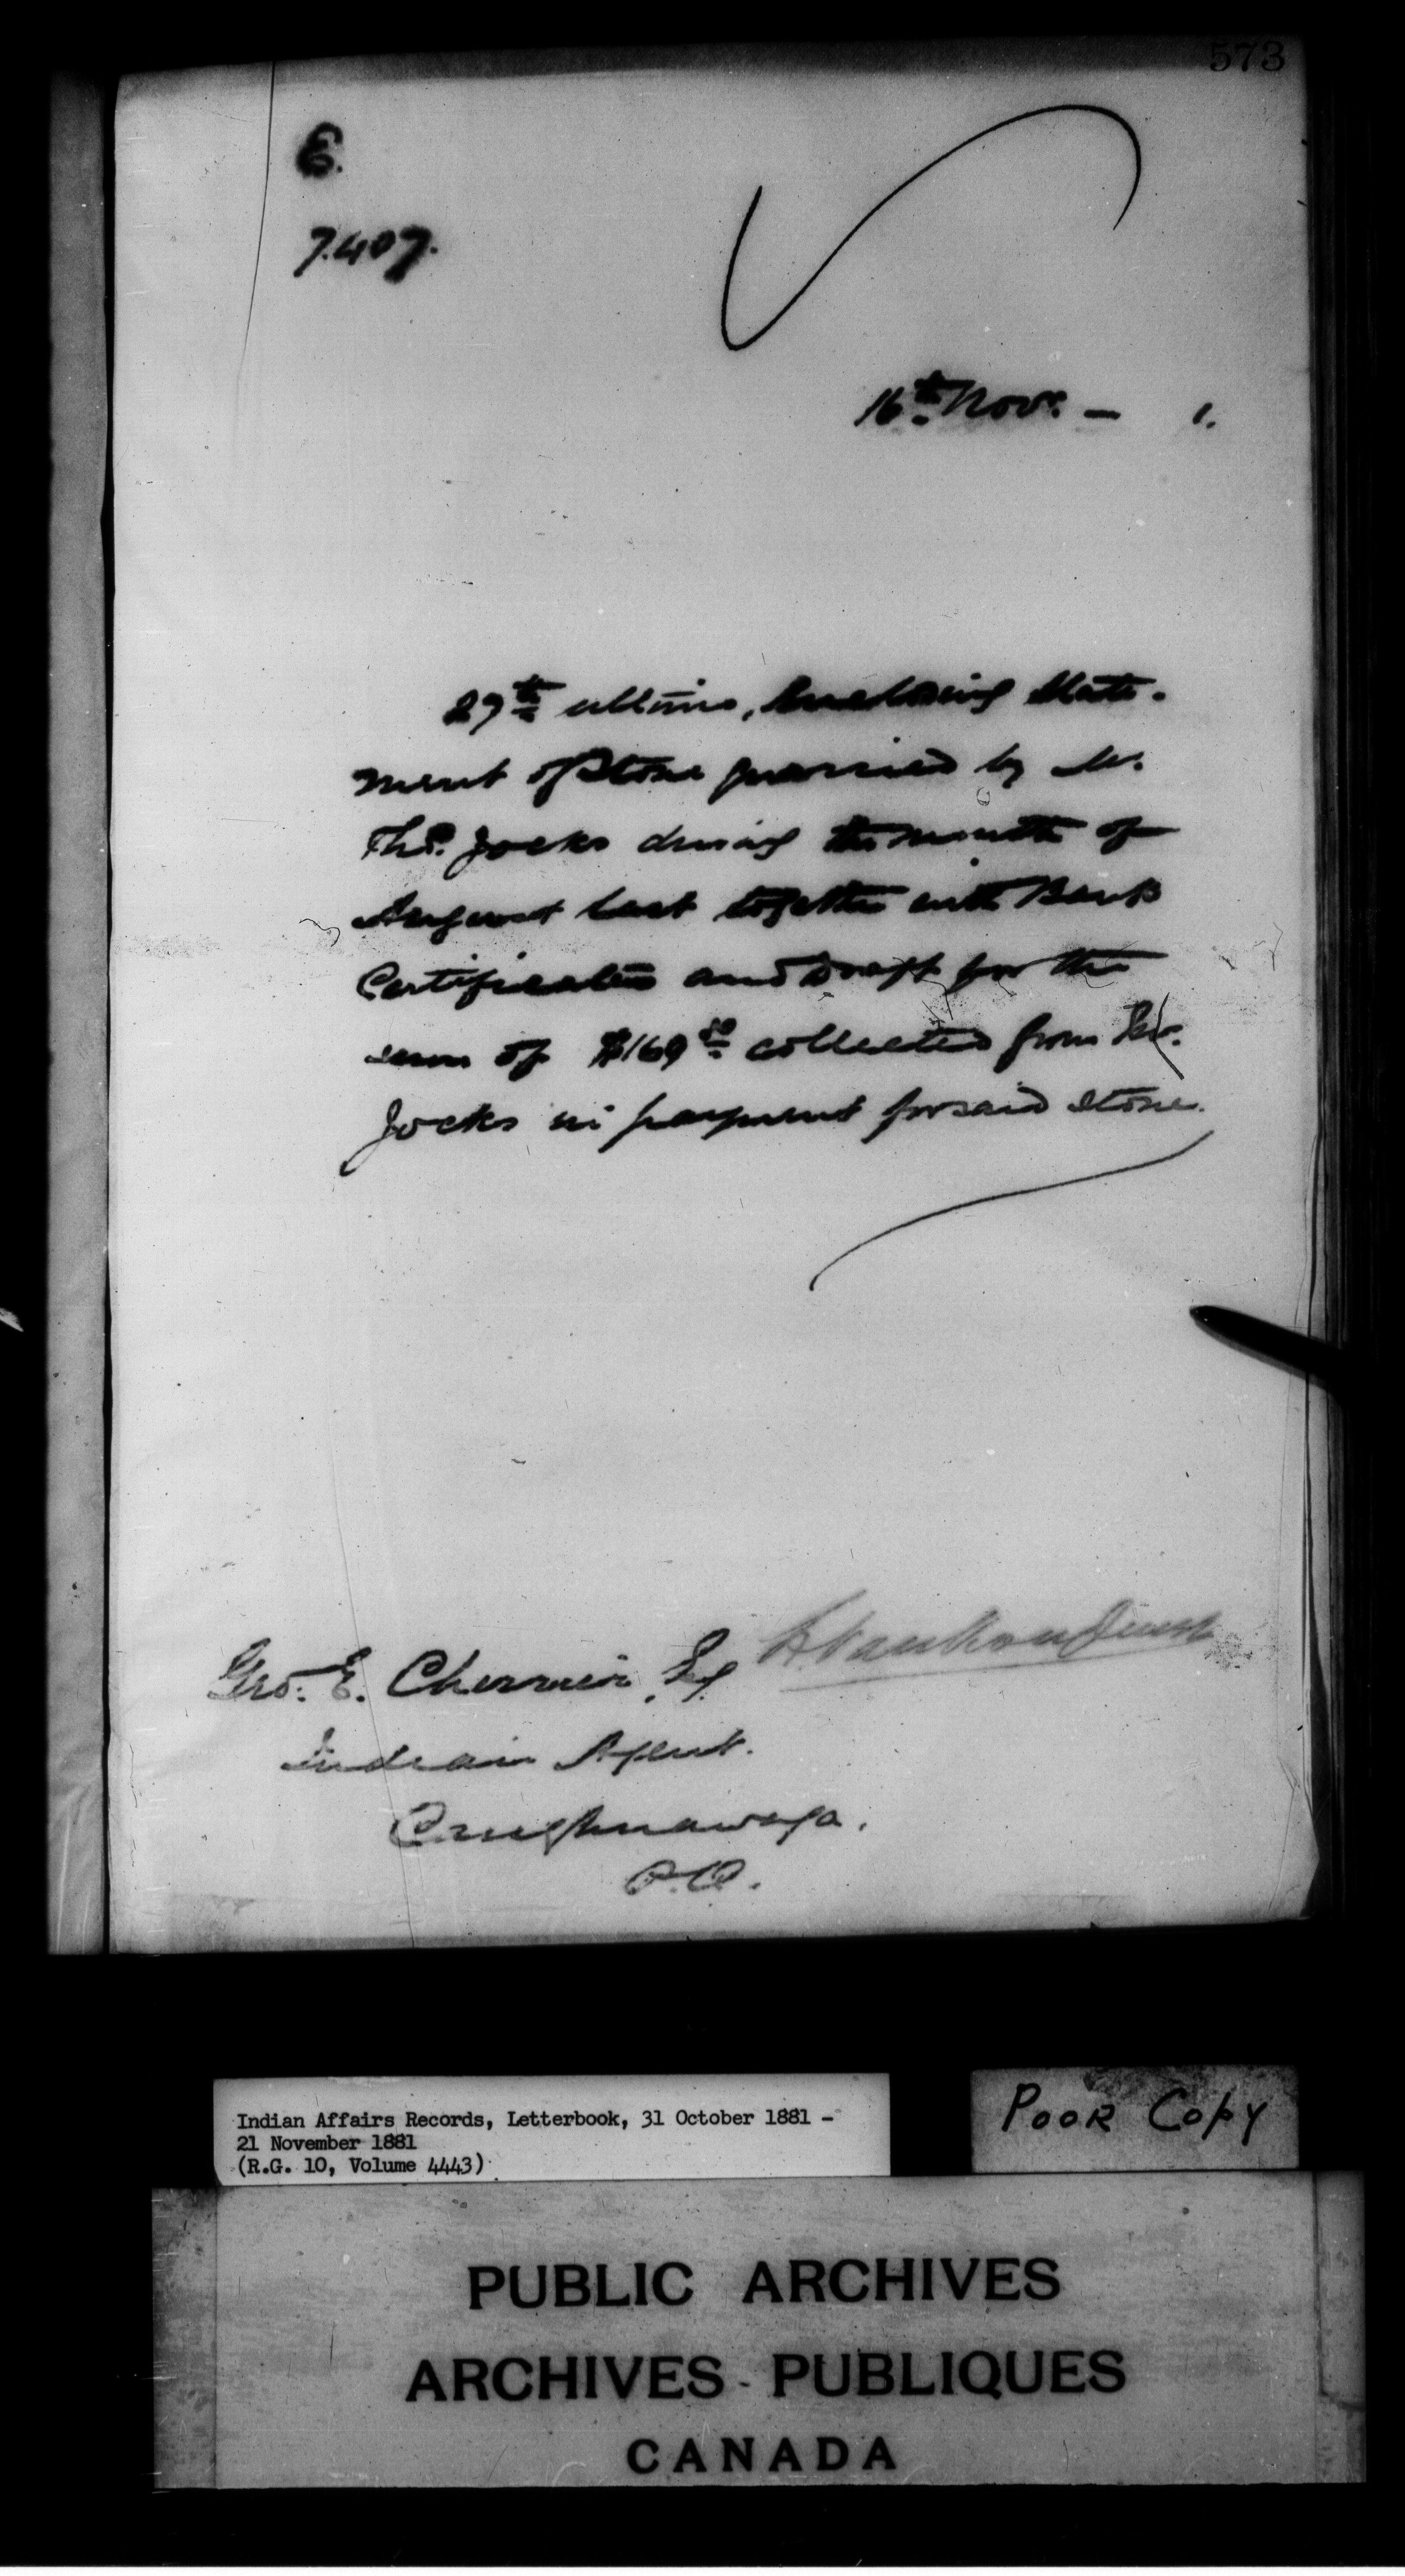 573
E.
7.407.
16th Novr. — 1.
27th ultimo, enclosing State-
ment of Stone quarried by Mr.
Thos. Jocks during the month of
August last together with Bank
Certificates and Draft for the
sum of $169.50 collected from Mr.
Jocks in payment for said stone.
L. Vankoughnet
Geo. E. Cherrier, Esq.
Indian Agent.
Caughnawaga.
P.Q.
Indian Affairs Records, Letterbook, 31 October 1881 -
21 November 1881
(R.G. 10, Volume 4443)
POOR COPY
PUBLIC ARCHIVES
ARCHIVES PUBLIQUES
CANADA